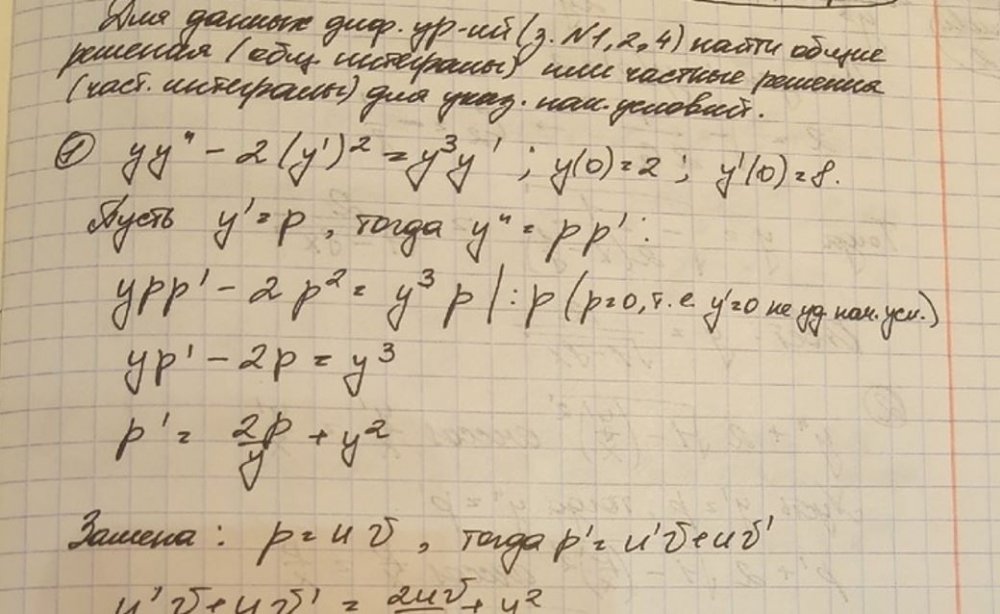 Для данных диф. ур-ий (з. №1, 2, 4) найти общие
решения (общ. интегралы) или частные решения
(част. интегралы) для указ. нач. условий.
① yy" - 2(y')² = y³y' ; y(0)=2 ; y'(0)=8.
Пусть y' = p, тогда y" = pp' :
ypp' - 2p² = y³p | : p (p=0, т.е. y'=0 не уд. нач. усл.)
yp' - 2p = y³
p' = 2p/y + y²
Замена : p = uv, тогда p' = u'v + uv'
u'v + uv' = 2uv + y²